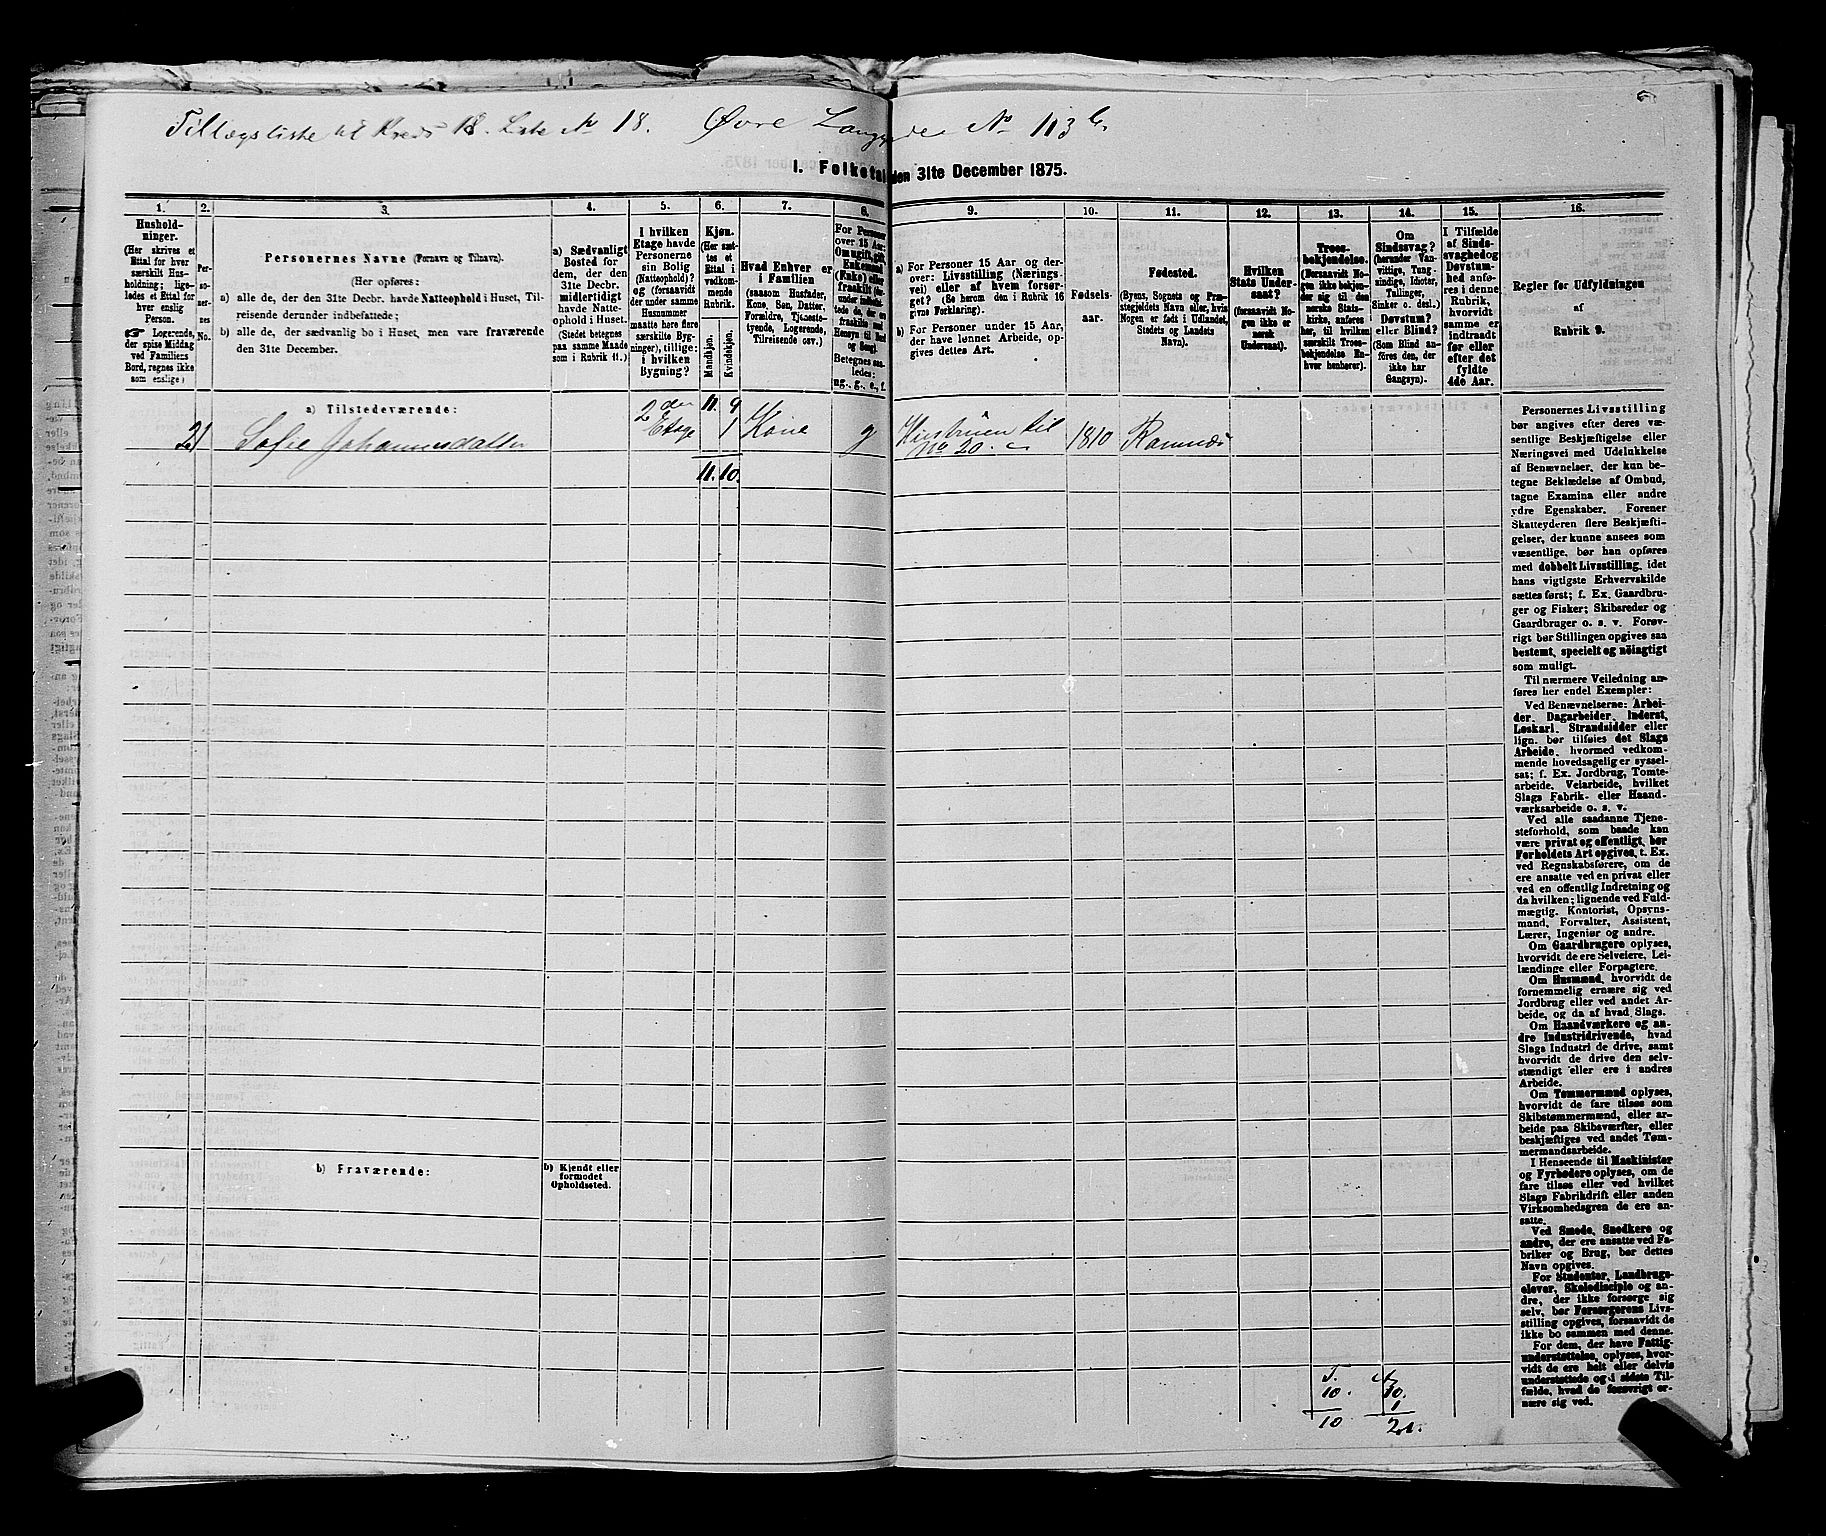 Tillægsliste til Kreds 18. Liste No 18. Øvre Langgade No 113 b.
I. Folketal den 31te December 1875.
1. 2. 3. 4. 5. 6. 7. 8. 9. 10. 11. 12. 13. 14. 15. 16.
Husholdninger.
(Her skrives et
Ettal for hver
særskilt Husholdning;
ligeledes et Ettal for
hver enslig
Person.
☞ Logerende,
der spise Middag
ved Familiens
Bord, regnes ikke
som enslige)
Personernes
No.
Personernes Navne (Fornavn og Tilnavn).
(Her opføres:
a) alle de, der den 31te Decbr. havde Natteophold i Huset, Tilreisende
derunder indbefattede;
b) alle de, der sædvanlig bo i Huset, men vare fraværende
den 31te December.
a) Sædvanligt
Bosted for
dem, der den
31te Decbr.
midlertidigt
havde Natteophold
i Huset.
(Stedet betegnes
paa samme Maade
som i Rubrik 11.)
I hvilken
Etage havde
Personerne
sin Bolig
(Natteophold)?
og (forsaavidt
der under samme
Husnummer
maatte høre flere
særskilte Bygninger),
tillige:
i hvilken
Bygning?
Kjøn.
(Her sættes
et
Ettal i
vedkommende
Rubrik.
Mandkjøn.
Kvindekjøn.
Hvad Enhver er
i Familien
(saasom Husfader,
Kone, Søn, Datter,
Forældre, Tjenestetyende,
Logerende,
Tilreisende osv.)
For Personer
over 15 Aar:
Om ugift, gift,
Enkemand
(Enke) eller
fraskilt
Betegnes saaledes:
ug., g., e., f.
a) For Personer 15 Aar og derover:
Livsstilling (Næringsvei)
eller af hvem forsørget?
(Se herom den i Rubrik 16
givne Forklaring).
b) For Personer under 15 Aar,
der have lønnet Arbeide, opgives
dettes Art.
Fødselsaar.
Fødested.
(Byens, Sognets og Præstegjeldets
Navn eller, hvis
Nogen er født i Udlandet,
Stedets og Landets
Navn).
Hvilken
Stats Undersaat?
(forsaavidt Nogen
ikke er
norsk
Undersaat).
Troesbekjendelse.
(Forsaavidt Nogen
ikke bekjender
sig til den
norske Statskirke,
anføres
her, til hvilken
særskilt Troesbekjendelse
Enhver
henhører).
Om
Sindssvag?
(herunder Vanvittige,
Tungsindige,
Idioter,
Tullinger,
Sinker o. desl.)
Døvstum?
eller Blind?
(Som Blind anføres
den, der
ikke har
Gangsyn).
I Tilfælde
af Sindssvaghed
og
Døvstumhed
anføres
i denne
Rubrik,
hvorvidt
samme er
indtraadt
før eller
efter det
fyldte
4de Aar.
Regler for Udfyldningen
af
Rubrik 9.
a) Tilstedeværende:
11. 9
21 Sofie Johannesdatter 2den Etage 1 Kone g Hustruen til No 20. 1810 Ramnæs
11. 10.
Personernes Livsstilling
bør angives efter deres væsentlige
Beskjæftigelse eller
Næringsvei med Udelukkelse
af Benævnelser, der kun betegne
Beklædelse af Ombud,
tagne Examina eller andre
ydre Egenskaber. Forener
Skatteyderen flere Beskjæftigelser,
der kunne ansees som
væsentlige, bør han opføres
med dobbelt Livsstilling, idet
hans vigtigste Erhvervskilde
sættes først; f. Ex. Gaardbruger
og Fisker; Skibsreder og
Gaardbruger o. s. v. Forøvrigt
bør Stillingen opgives saa
bestemt, specielt og nøiagtigt
som muligt.
Til nærmere Veiledning anføres
her endel Exempler:
Ved Benævnelserne: Arbeider,
Dagarbeider, Inderst,
Løskarl, Strandsidder eller
lign. bør tilføies det Slags
Arbeide, hvormed vedkommende
hovedsagelig er sysselsat;
f. Ex. Jordbrug, Tomtearbeide,
Veiarbeide, hvilket
Slags Fabrik- eller Haandværksarbeide
o. s. v.
Ved alle saadanne Tjenesteforhold,
som baade kan
være privat og offentligt, bør
Forholdets Art opgives, f. Ex.
ved Regnskabsførere, om de
ere ansatte ved en privat eller
ved en offentlig Indretning og
da hvilken; lignende ved Fuldmægtig,
Kontorist, Opsynsmand,
Forvalter, Assistent,
Lærer, Ingeniør og andre.
Om Gaardbrugere oplyses,
hvorvidt de ere Selveiere, Leilændinge
eller Forpagtere.
Om Husmænd, hvorvidt de
fornemmelig ernære sig ved
Jordbrug eller ved andet Arbeide,
og da af hvad Slags.
Om Haandværkere og andre
Industridrivende, hvad
Slags Industri de drive, samt
hvorvidt de drive den selvstændigt
eller ere i andres
Arbeide.
Om Tømmermænd oplyses,
hvorvidt de fare tilsøs som
Skibstømmermænd, eller arbeide
paa Skibsværfter, eller
beskjæftiges ved andet Tømmermandsarbeide.
I Henseende til Maskinister
og Fyrbødere oplyses, om de
fare tilsøs eller ved hvilket
Slags Fabrikdrift eller anden
Virksomhedsgren de ere ansatte.
Ved Smede, Snedkere og
andre, der ere ansatte ved Fabriker
og Brug, bør dettes
Navn opgives.
For Studenter, Landbrugselever,
Skoledisciple og andre,
der ikke forsørge sig
selv, bør Forsørgerens Livsstilling
opgives, forsaavidt de
ikke bo sammen med denne.
For dem, der have Fattigunderstøttelse,
oplyses, hvorvidt
de ere helt eller delvis
understøttede og i sidste Tilfælde,
hvad de forøvrigt ernære
sig ved.
b) Fraværende:
b) Kjendt eller
formodet
Opholdssted.
10. 10.
1
10 21.